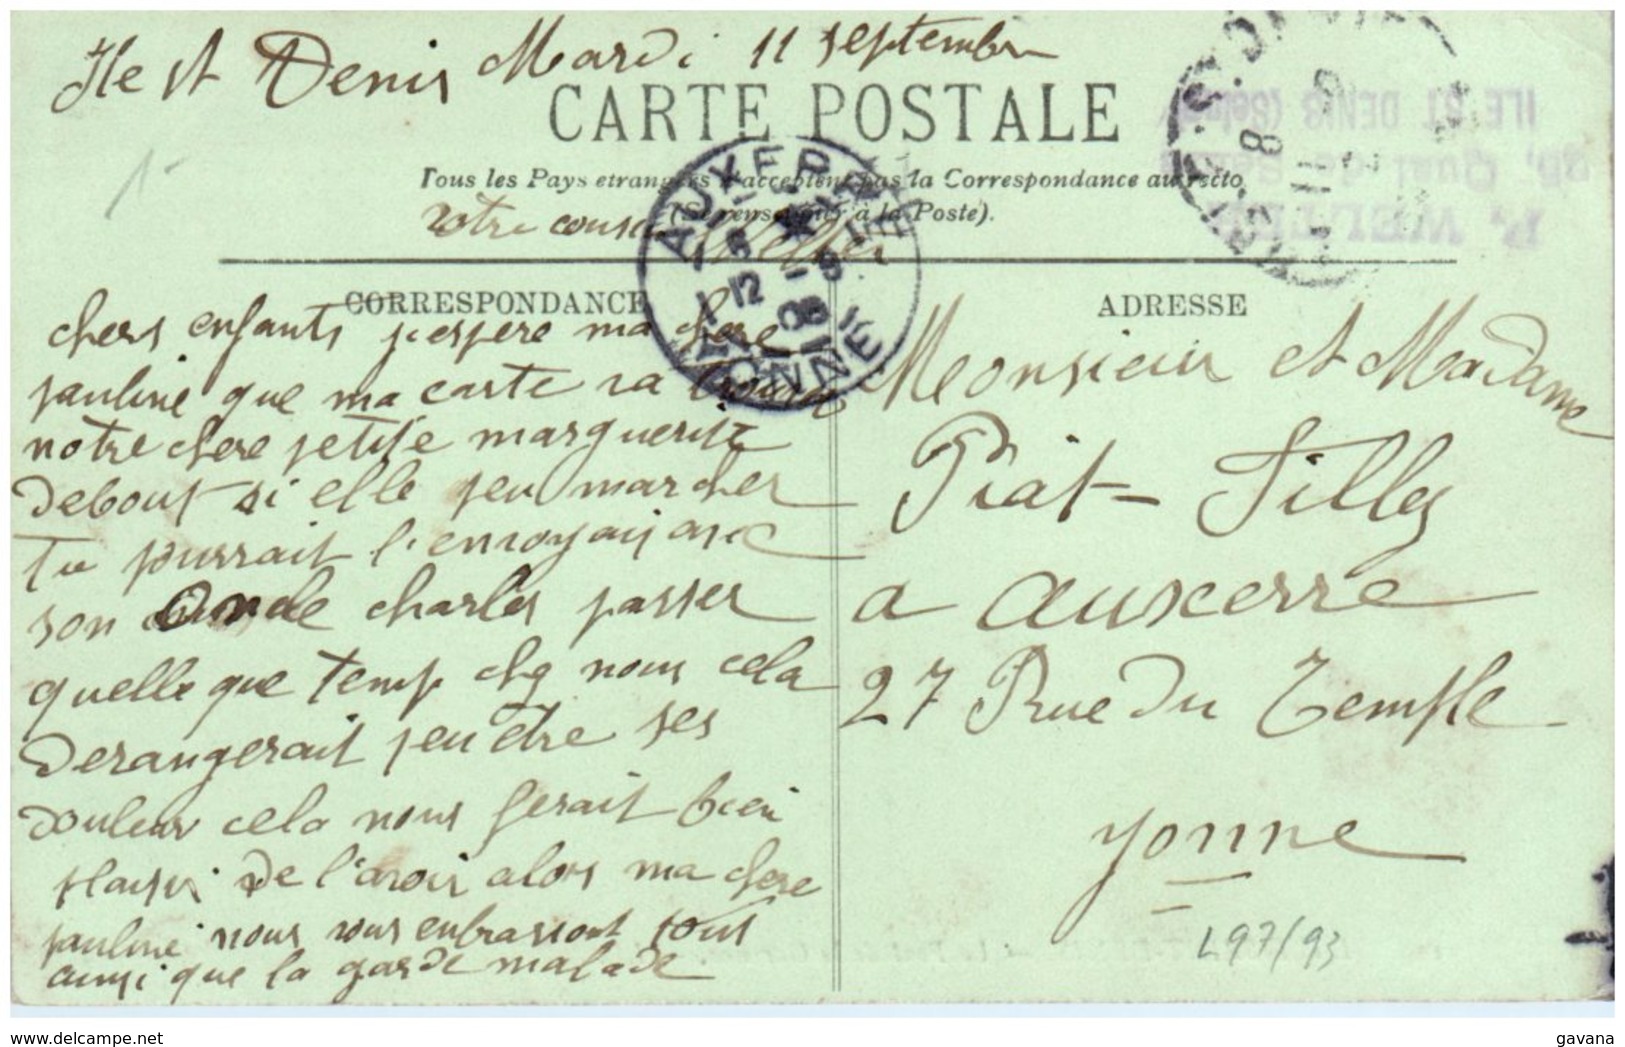 Ile st Denis Mardi 11 septembre
CARTE POSTALE
Tous les Pays etrangers n'acceptent pas la Correspondance au recto
(Se renseigner à la Poste).
votre cousin Welter
P. WELTER
Quai de Seine
ILE ST DENIS (Seine)
AUXERRE
12 - 9
08
YONNE
CORRESPONDANCE
chers enfants j'espere ma chere
pauline que ma carte va trouver
notre chere petite marguerite
debout si elle peu marcher
tu pourrait l'envoyais avec
son oncle charles passer
quelle que temp chez nous cela
derangerait peu être ses
douleur cela nous ferait bien
plaisir de l'avoir alors ma chere
pauline nous vous enbrassont tous
ainsi que la garde malade
ADRESSE
Monsieur et Madame
Piat-Filley
a auxerre
27 Rue du Temple
yonne
L97/93
delcampe.net
gavana